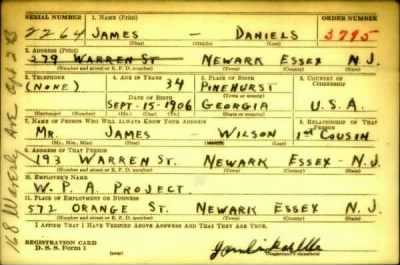 SERIAL NUMBER 1. NAME (Print) ORDER NUMBER
2264 JAMES - DANIELS 3795
(First) (Middle) (Last)
2. ADDRESS (Print)
279 WARREN ST NEWARK ESSEX N.J.
(Number and street or R. F. D. number) (Town) (County) (State)
3. TELEPHONE 4. AGE IN YEARS 5. PLACE OF BIRTH 6. COUNTRY OF CITIZENSHIP
(NONE) 34 PINEHURST
DATE OF BIRTH
SEPT-15-1906 GEORGIA U.S.A.
(Mo.) (Day) (Yr.) (State or country)
7. NAME OF PERSON WHO WILL ALWAYS KNOW YOUR ADDRESS 8. RELATIONSHIP OF THAT PERSON
MR. JAMES - WILSON 1st COUSIN
(Mr., Mrs., Miss) (First) (Middle) (Last)
9. ADDRESS OF THAT PERSON
193 WARREN ST. NEWARK ESSEX - N.J.
(Number and street or R. F. D. number) (Town) (County) (State)
10. EMPLOYER'S NAME
W.P.A. PROJECT.
11. PLACE OF EMPLOYMENT OR BUSINESS
572 ORANGE ST. NEWARK ESSEX N.J.
(Number and street or R. F. D. number) (Town) (County) (State)
I AFFIRM THAT I HAVE VERIFIED ABOVE ANSWERS AND THAT THEY ARE TRUE.
REGISTRATION CARD
D. S. S. Form 1
(Registrant's signature)
168 AVE